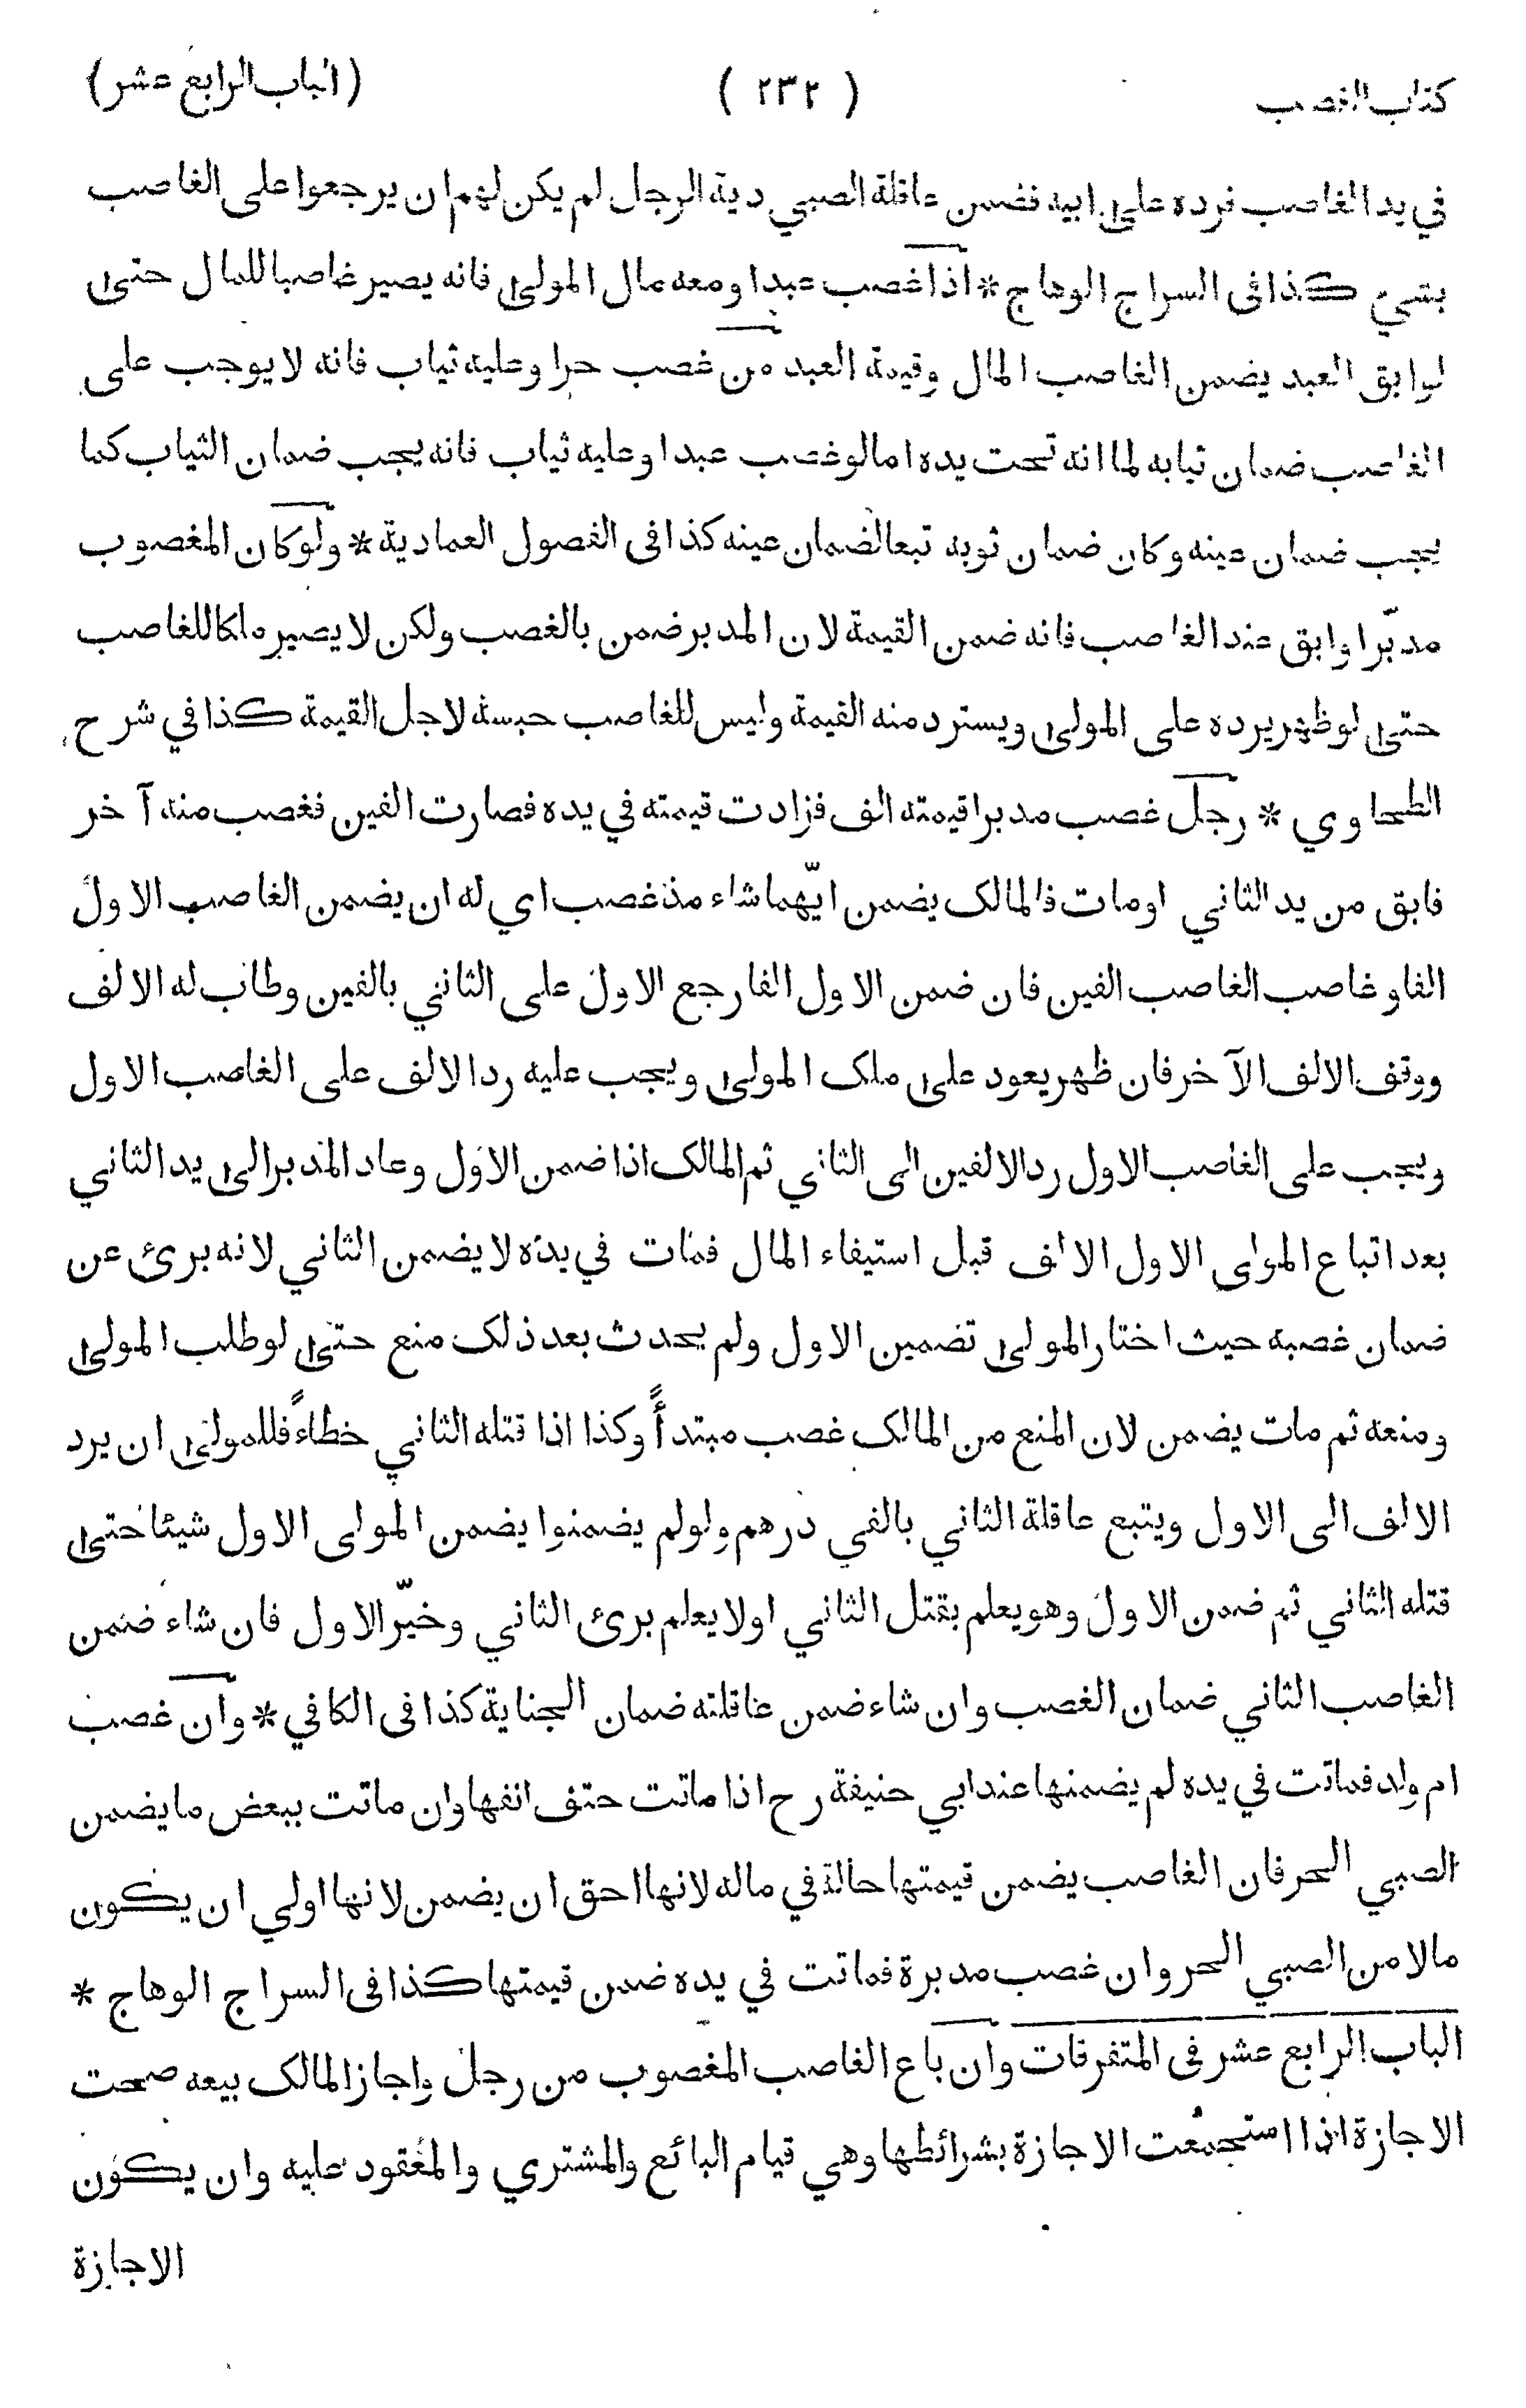 كتاب الغصب ( ٢٣٢ ) (الباب الرابع عشر)
في يد الغاصب فرده على ابيه فضمن عاقلة الصبي دية الرجل لم يكن لهم ان يرجعوا على الغاصب
بشيء كذا فى السراج الوهاج * اذا غصب عبدا ومعه مال المولى فانه يصير غاصبا للمال حتى
لو ابق العبد يضمن الغاصب المال وقيمة العبد من غصب حرا وعليه ثياب فانه لا يوجب على
الغاصب ضمان ثيابه لما انه تحت يده اما لو غصب عبدا وعليه ثياب فانه يجب ضمان الثياب كما
يجب ضمان عينه وكان ضمان ثوبه تبعا لضمان عينه كذا فى الفصول العمادية * ولو كان المغصوب
مدبّرا وابق عند الغاصب فانه ضمن القيمة لان المدبر ضمن بالغصب ولكن لا يصير ملكا للغاصب
حتى لو ظهر يرده على المولى ويسترد منه القيمة وليس للغاصب حبسه لاجل القيمة كذا في شرح
الطحاوي * رجل غصب مدبرا قيمته الف فزادت قيمته في يده فصارت الفين فغصب منه آخر
فابق من يد الثاني او مات فالمالك يضمن ايّهما شاء مذ غصب اي له ان يضمن الغاصب الاول
الفا وغاصب الغاصب الفين فان ضمن الاول الفا رجع الاول على الثاني بالفين وطاب له الالف
ووقف الالف الآخر فان ظهر يعود على ملك المولى ويجب عليه رد الالف على الغاصب الاول
ويجب على الغاصب الاول رد الالفين الى الثاني ثم المالك اذا ضمن الاول وعاد المدبر الى يد الثاني
بعد اتباع المولى الاول الالف قبل استيفاء المال فمات في يده لا يضمن الثاني لانه برئ عن
ضمان غصبه حيث اختار المولى تضمين الاول ولم يحدث بعد ذلك منع حتى لو طلب المولى
ومنعه ثم مات يضمن لان المنع من المالك غصب مبتدأً وكذا اذا قتله الثاني خطاءً فللمولى ان يرد
الالف الى الاول ويتبع عاقلة الثاني بالفي درهم ولو لم يضمنوا يضمن المولى الاول شيئا حتى
قتله الثاني ثم ضمن الاول وهو يعلم بقتل الثاني او لا يعلم برئ الثاني وخيّر الاول فان شاء ضمن
الغاصب الثاني ضمان الغصب وان شاء ضمن عاقلته ضمان الجناية كذا فى الكافي * وان غصب
ام ولد فماتت في يده لم يضمنها عند ابي حنيفة رح اذا ماتت حتف انفها وان ماتت ببعض ما يضمن
الصبي الحر فان الغاصب يضمن قيمتها حالة في ماله لانها احق ان يضمن لانها اولي ان يكون
مالا من الصبي الحر وان غصب مدبرة فماتت في يده ضمن قيمتها كذا فى السراج الوهاج *
الباب الرابع عشر فى المتفرقات وان باع الغاصب المغصوب من رجل واجاز المالك بيعه صحت
الاجازة اذا استجمعت الاجازة بشرائطها وهي قيام البائع والمشتري والمعقود عليه وان يكون
الاجازة